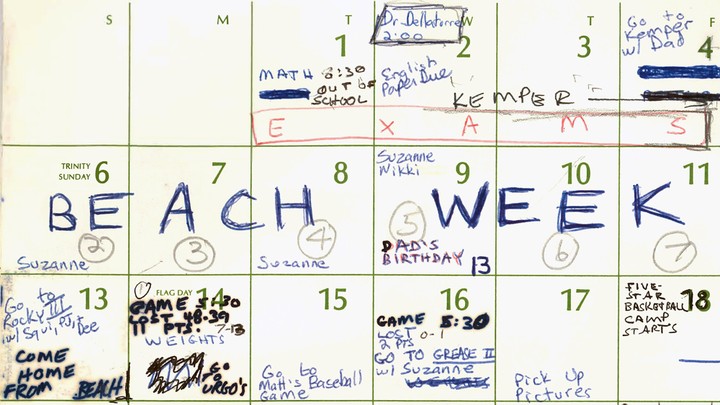 S M T W T F
Dr. Dellatorre
2:00
1 2 3 4
MATH 8:30
OUT OF
SCHOOL
English
Paper Due
Go to
Kemper
w/ Dad
KEMPER
E X A M S
TRINITY
SUNDAY 6
7 8 9 10 11
Suzanne
Nikki
BEACH WEEK
2 3 4 5 6 7
Suzanne
Suzanne
DAD'S
BIRTHDAY 13
13
Go to
Rocky III
w/ Squi, PJ,
Bee
COME
HOME
FROM BEACH
FLAG DAY 14
GAME 5:30
LOST 48-39
11 PTS. 7-13
WEIGHTS
GO
URGO'S
15
Go to
Matt's Baseball
Game
16
GAME 5:30
LOST 0-1
2 PTS
GO TO GREASE II
w/ Suzanne
17
Pick Up
Pictures
18
FIVE-
STAR
BASKETBALL
CAMP
STARTS